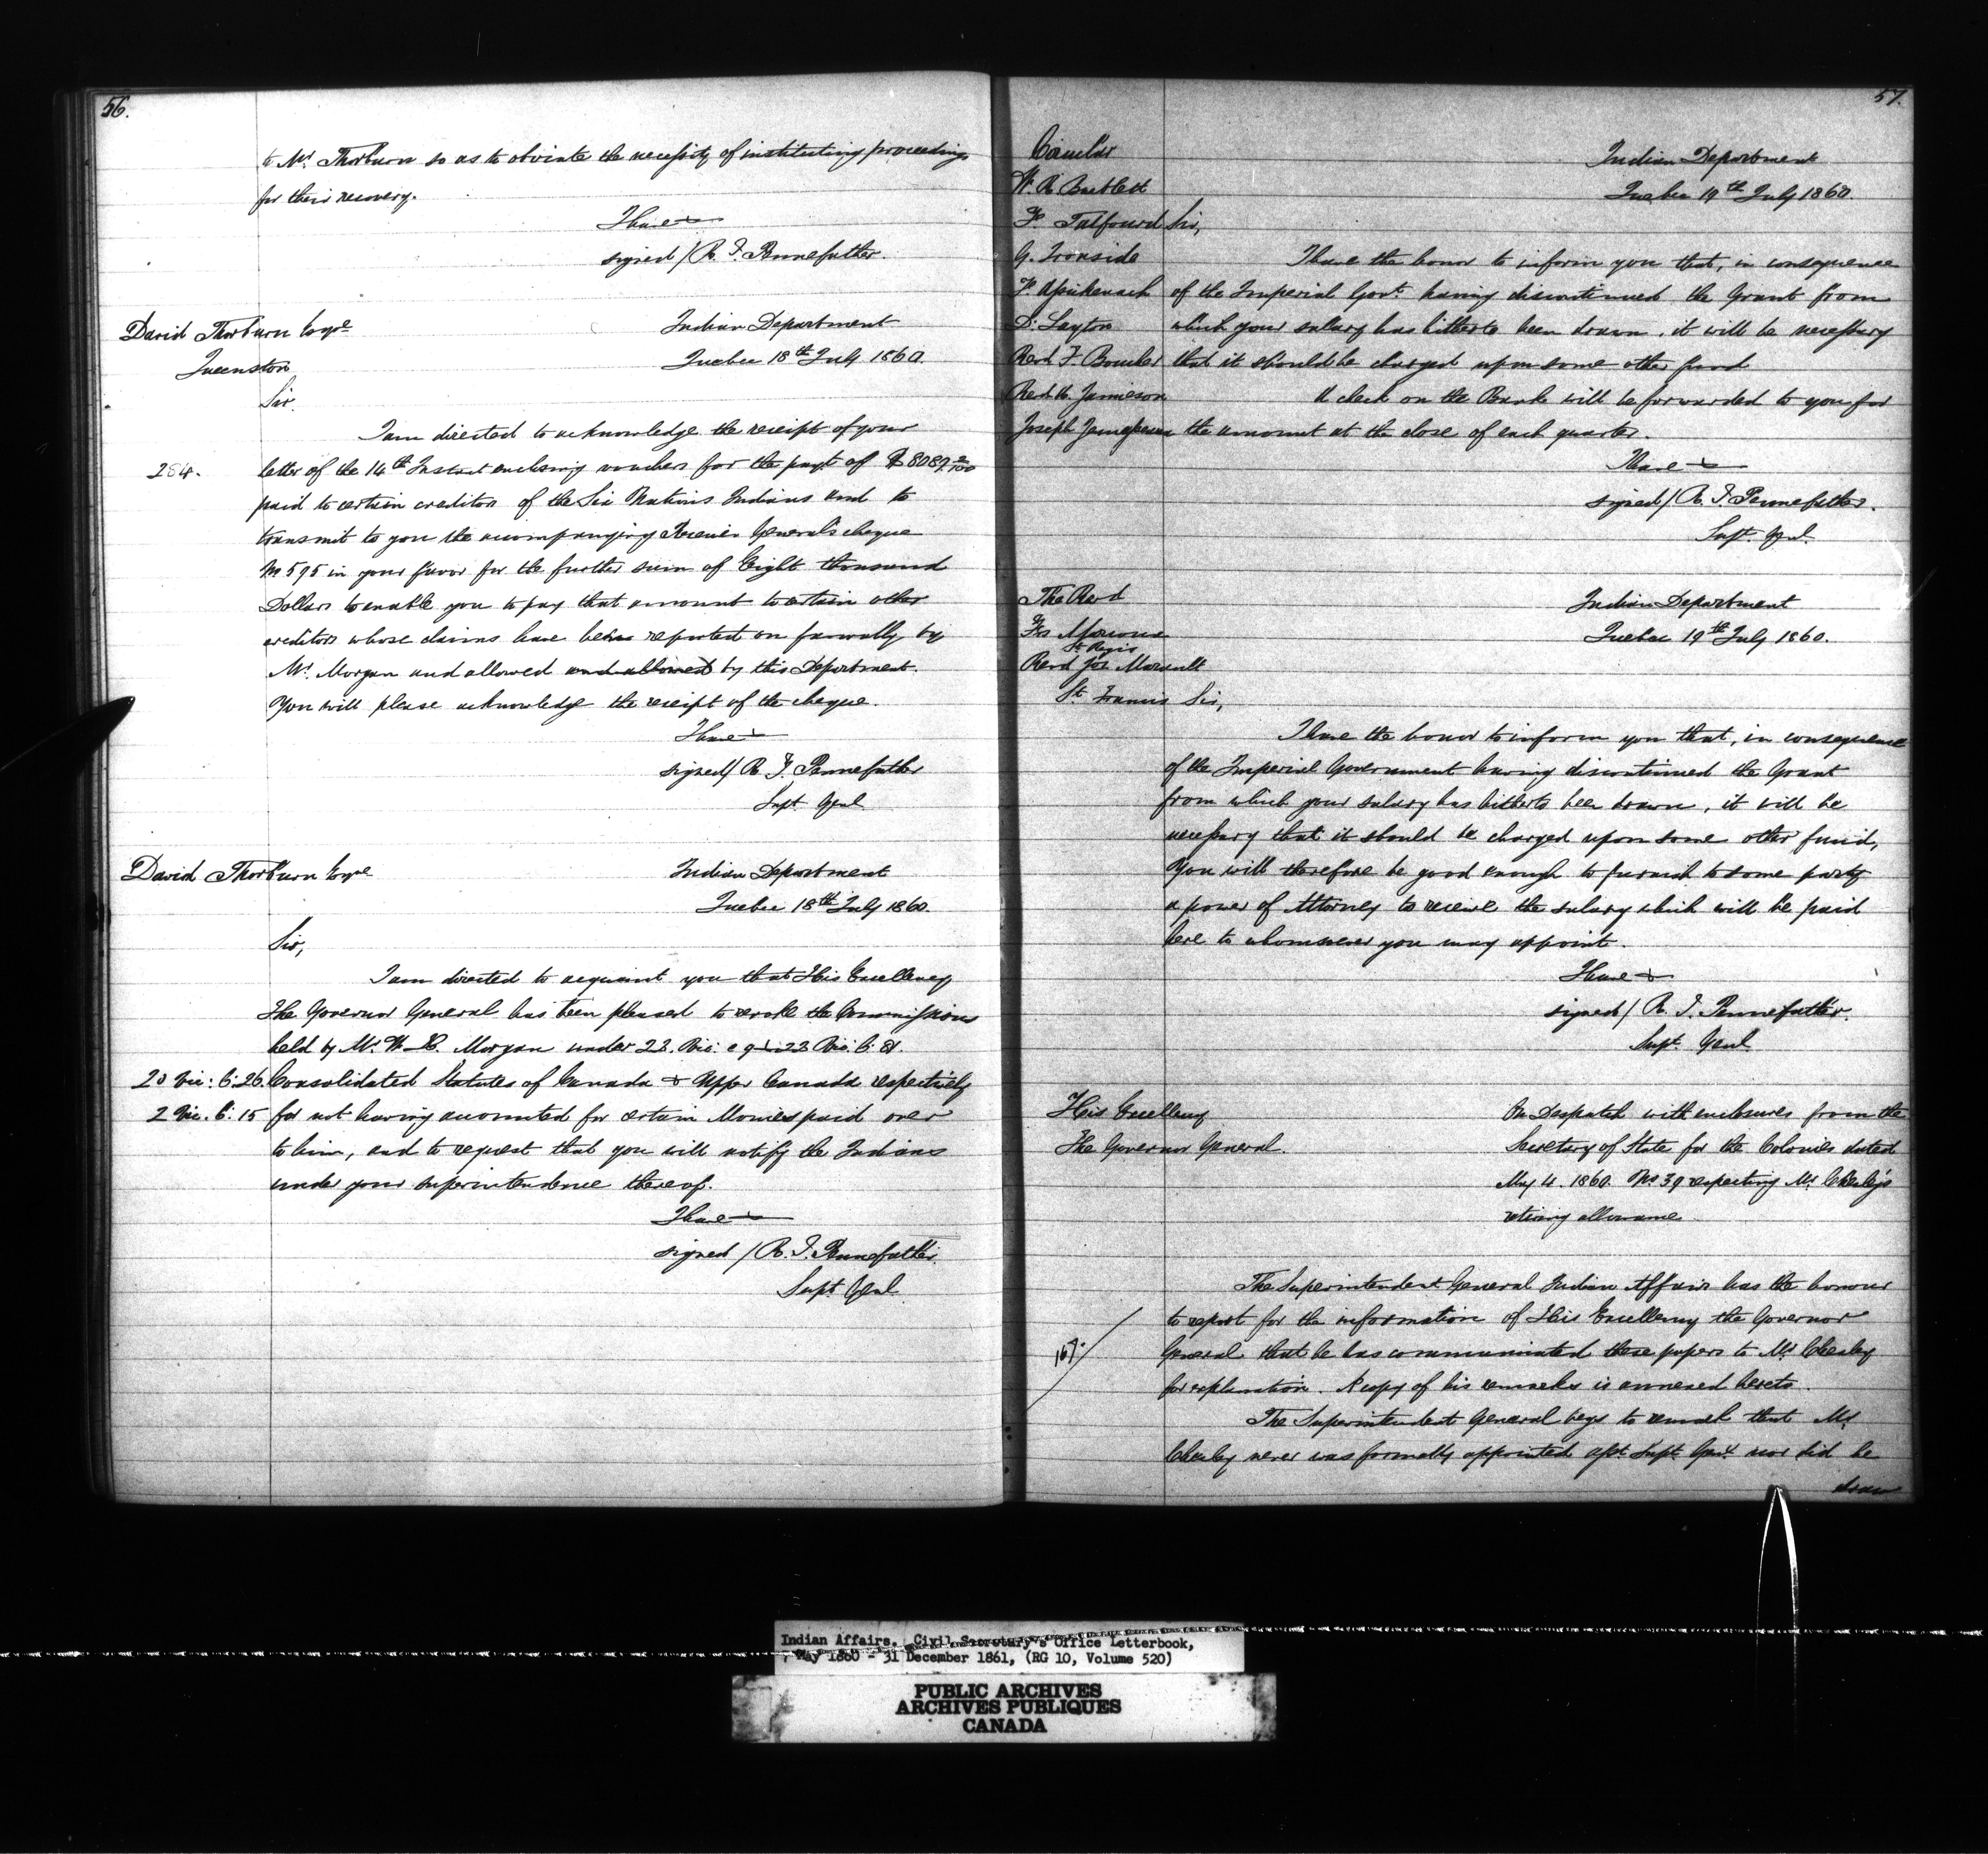 56.
to Mr. Thorburn so as to obviate the necessity of instituting proceedings
for their recovery.
I have &
signed / R. T. Pennefather.
David Thorburn Esqre
Indian Department
Queenston
Quebec 18th July 1860.
Sir.
I am directed to acknowledge the receipt of your
284. letter of the 14th Instant enclosing vouchers for the payt of $8089
paid to certain creditors of the Six Nations Indians and to
transmit to you the accompanying Receiver General's cheque
No 595 in your favor for the further sum of Eight thousand
Dollars to enable you to pay that amount to certain other
creditors whose claims have been reported on favorably by
Mr. Morgan and allowed and allowed by this Department.
You will please acknowledge the receipt of the cheque.
I have &
signed / R. T. Pennefather
Supt. Genl
David Thorburn Esqre
Indian Department
Quebec 18th July 1860.
Sir,
I am directed to acquaint you that His Excellency
the Governor General has been pleased to revoke the Commissions
held by Mr. W. Morgan under 22. Vic: c 9 & 23 Vic: C:
20 Vic: C: 26. Consolidated Statutes of Canada & Upper Canada respectively
2 Vic. C: 15 for not having accounted for certain Monies paid over
to him, and to request that you will notify the Indians
under your superintendence thereof.
I have &
signed / R. T. Pennefather.
Supt Genl
57.
Circular
Indian Department
W. R. Bartlett
Quebec 19th July 1860.
F. Talfourd Sir,
G. Ironside I have the honor to inform you that, in consequence
F. Assikenack of the Imperial Govt. having discontinued the Grant from
D. Layton which your salary has hitherto been drawn, it will be necessary
Revd F. Boucher that it should be charged upon some other fund
Revd A. Jamieson A check on the Bank will be forwarded to you for
Joseph the amount at the close of each quarter.
I have &
signed / R. T. Pennefather.
Supt. Genl.
The Revd
Indian Department
Frs Marcoux
Quebec 19th July 1860.
St. Regis
Revd Jos Maurault
St. Francis Sir,
I have the honor to inform you that, in consequence
of the Imperial Government having discontinued the Grant
from which your salary has hitherto been drawn, it will be
necessary that it should be charged upon some other fund,
You will therefore be good enough to furnish to some party
a power of Attorney to receive the salary which will be paid
here to whomsoever you may appoint.
I have &
signed / R. T. Pennefather.
Supt. Genl.
His Excellency
The Governor General.
On Despatch with enclosures from the
Secretary of State for the Colonies dated
May 4. 1860. No 39 respecting Mr. Chesley's
retiring allowance
The Superintendent General Indian Affairs has the honour
to report for the information of His Excellency the Governor
167. General that he has communicated these papers to Mr Chesley
for explanation. A copy of his remarks is annexed hereto.
The Superintendent General begs to remark that Mr
Chesley never was formally appointed Asst. Supt. Genl. nor did he
draw
Indian Affairs. Civil Secretary's Office Letterbook,
May 1860 - 31 December 1861, (RG 10, Volume 520)
PUBLIC ARCHIVES
ARCHIVES PUBLIQUES
CANADA